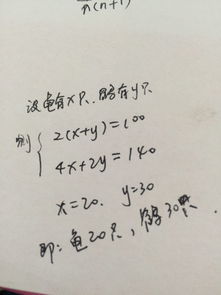 n(n+1)
设龟有x只，鹤有y只
则
2(x+y)=100
4x+2y=140
x=20. y=30
即：龟20只，鹤30只.